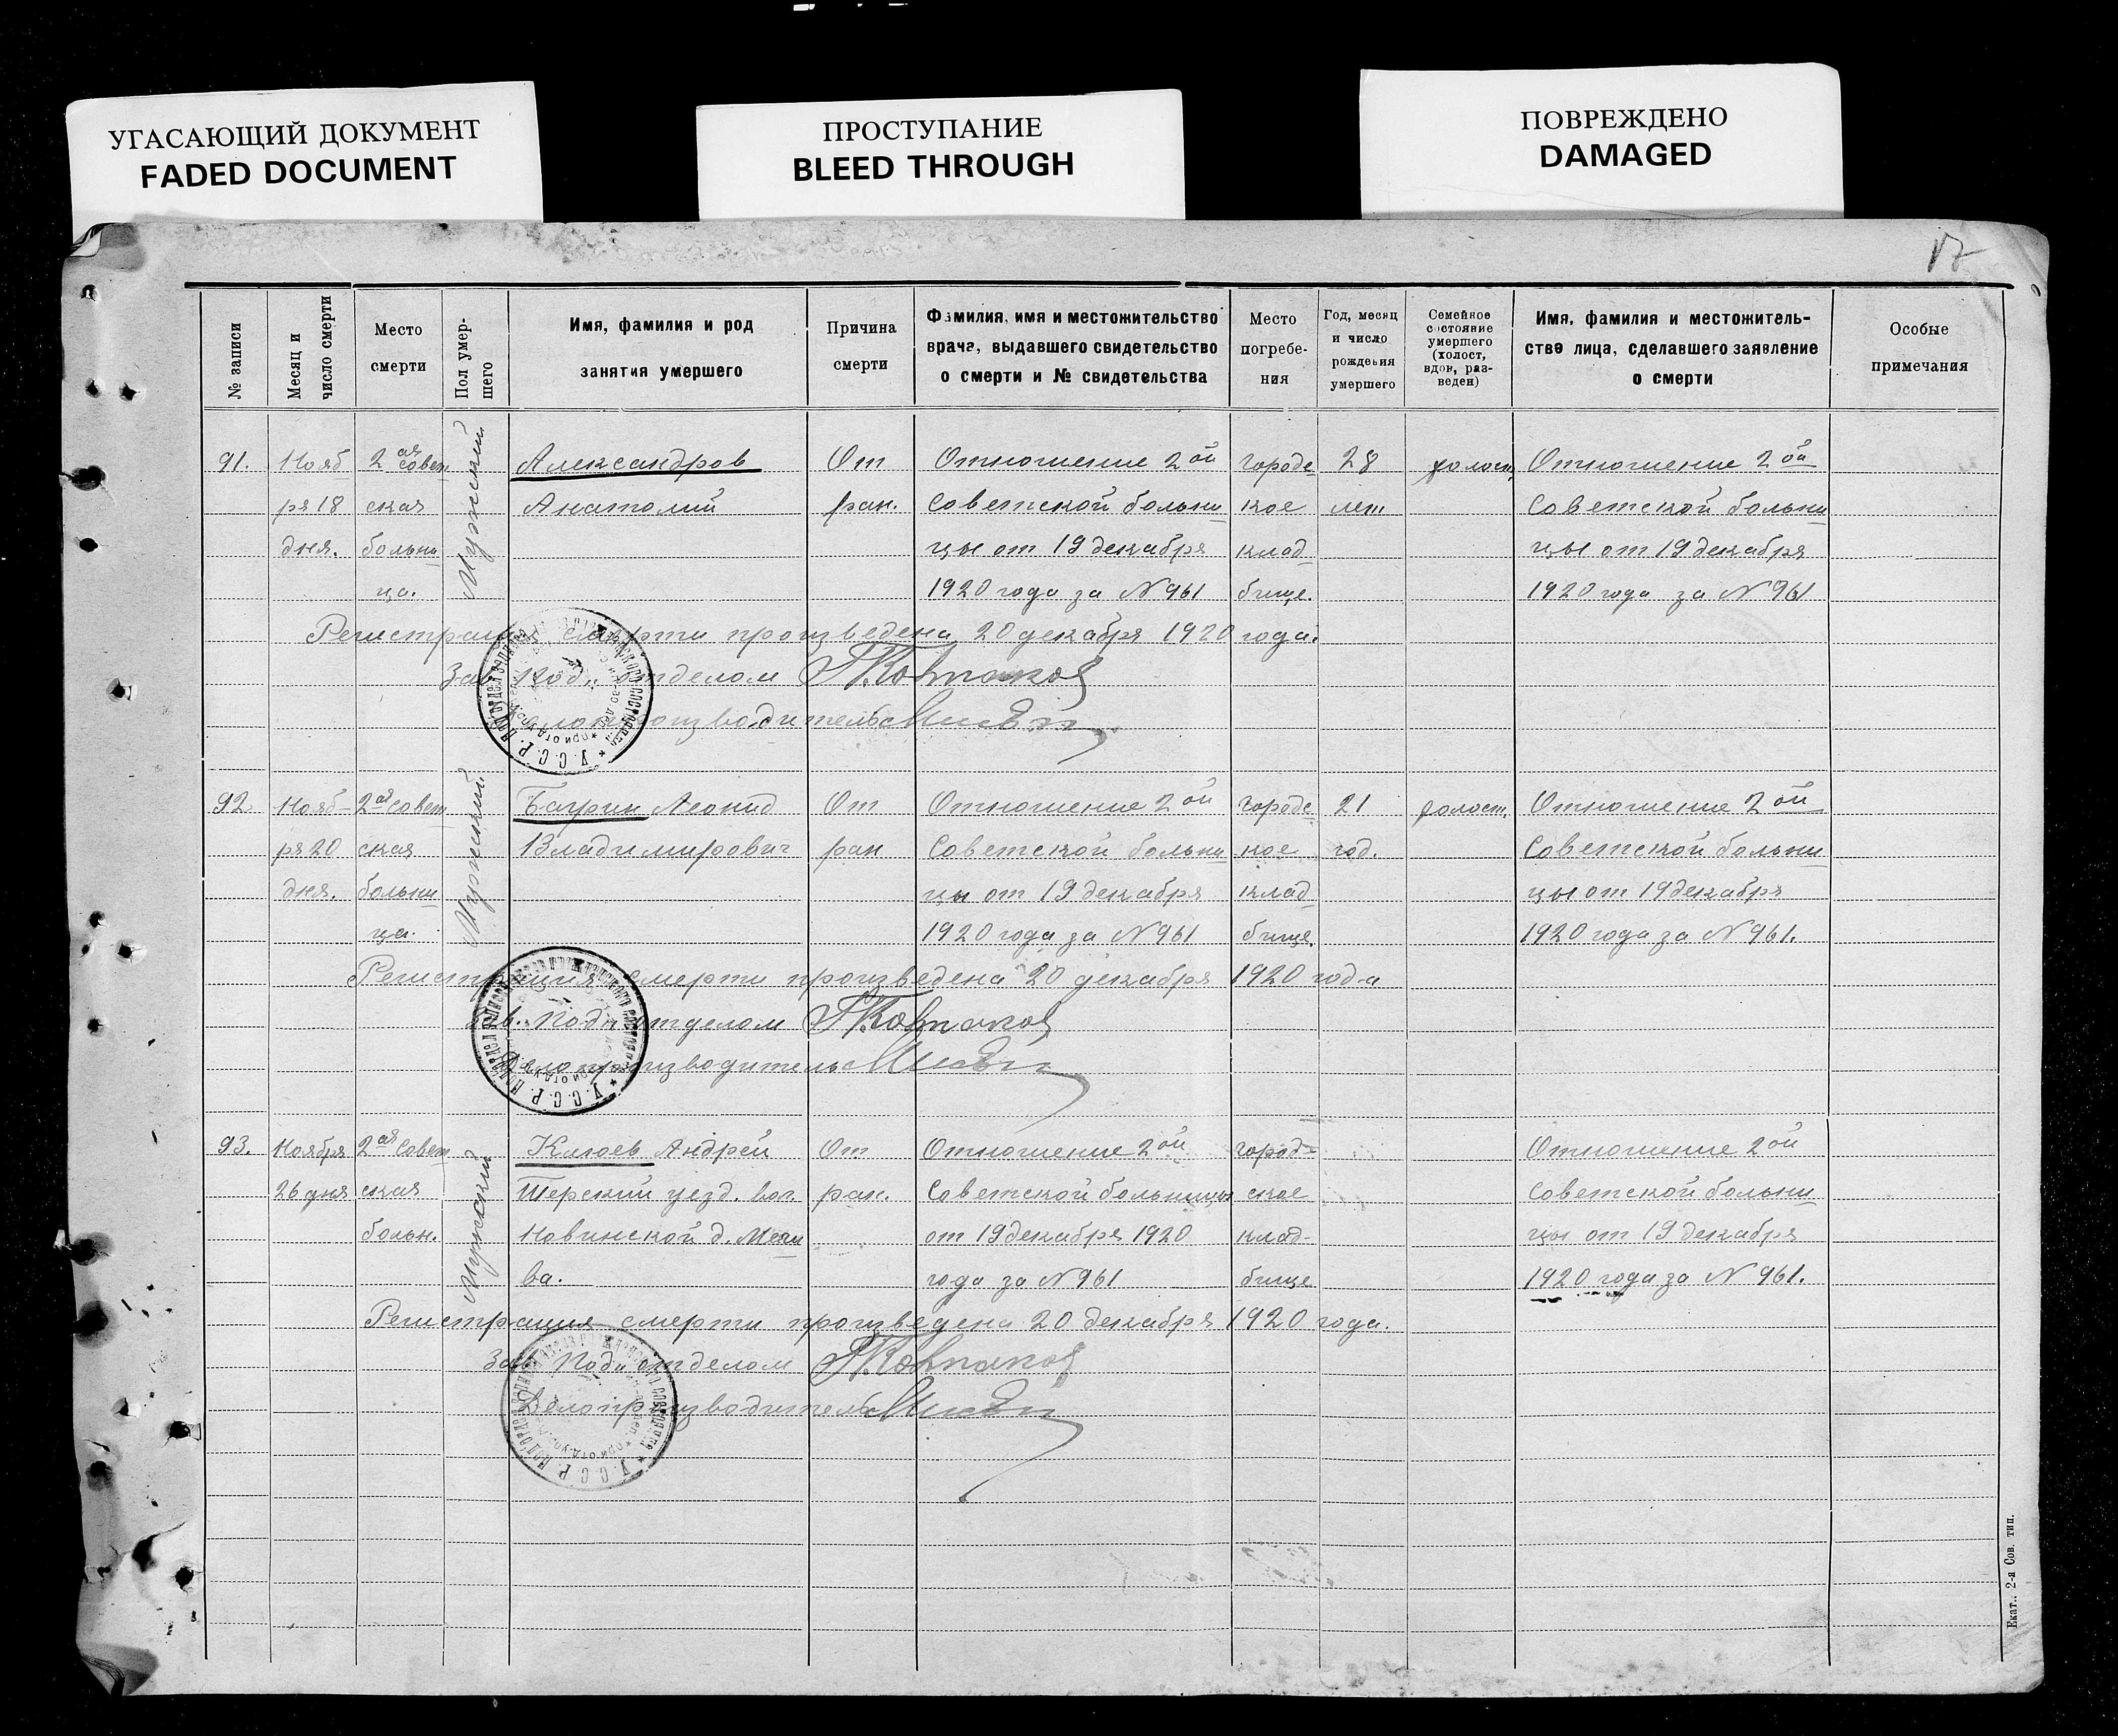 УГАСАЮЩИЙ ДОКУМЕНТ
FADED DOCUMENT
ПРОСТУПАНИЕ
BLEED THROUGH
ПОВРЕЖДЕНО
DAMAGED
17
№ записи
Месяц и число смерти
Место смерти
Пол умершего
Имя, фамилия и род занятия умершего
Причина смерти
Фамилия, имя и местожительство врача, выдавшего свидетельство о смерти и № свидетельства
Место погребения
Год, месяц и число рождения умершего
Семейное состояние умершего (холост, вдов, разведен)
Имя, фамилия и местожительство лица, сделавшего заявление о смерти
Особые примечания
91. Нояб 2ая совет Мужской Александров От Отношение 2ой городс 28 холост, Отношение 2ой
ря 18 ская Анатолий ран. Советской больни кое лет Советской больни
дня. больни цы от 19 декабря клад цы от 19 декабря
ца. 1920 года за №961 бище. 1920 года за №961
Регистрация смерти произведена 20 декабря 1920 года.
Зав. Под. отделом
Делопроизводитель
У.С.С.Р.
92. Нояб- 2ая совет Мужской Леонид От Отношение 2ой городс 21 холост, Отношение 2ой
ря 20 ская Владимирович ран Советской больни кое год. Советской больни
дня. больни цы от 19 декабря клад цы от 19 декабря
ца. 1920 года за №961 бище. 1920 года за №961.
Регистрация смерти произведена 20 декабря 1920 года
Зав. Под. отделом
Делопроизводитель
У.С.С.Р.
93. Ноября 2ая Совет Мужской Клюев Андрей От Отношение 2ой город- Отношение 2ой
26 дня ская уезд. вол. ран. Советской больницы ское Советской больни
больн. Новинской д. от 19 декабря 1920 клад- цы от 19 декабря
ва. года за №961 бище 1920 года за №961.
Регистрация смерти произведена 20 декабря 1920 года.
Зав. Под. отделом
Делопроизводитель
У.С.С.Р.
Екат., 2-я Сов. тип.